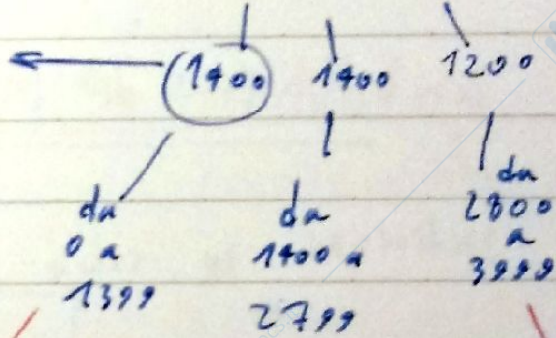 1400 1400 1200
da
0 a
1399
da
1400 a
2799
da
2800
a
3999